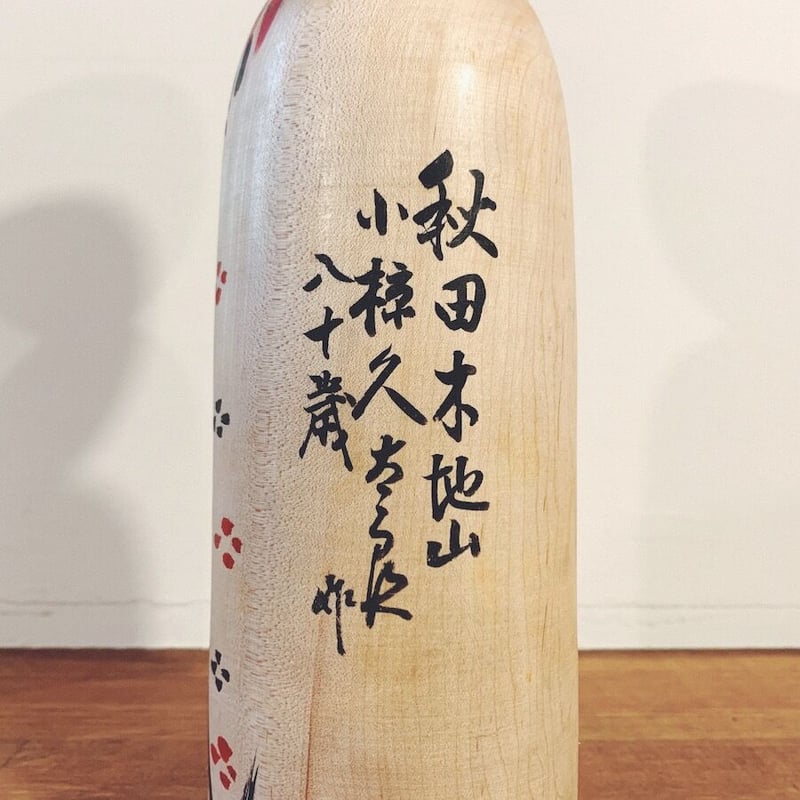 秋田木地山
小椋久太郎
八十歳 作